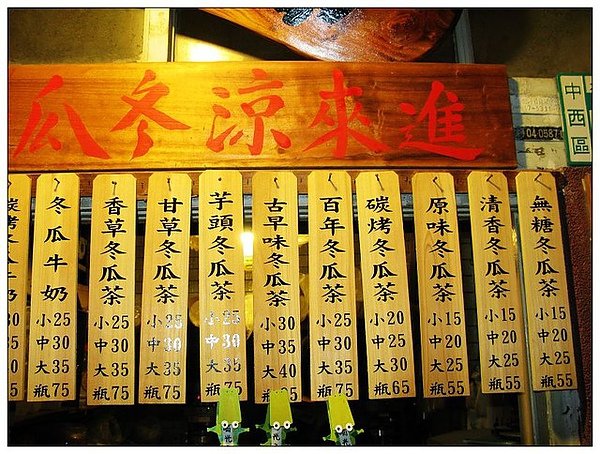 進來涼冬瓜
中西區
04-0587
無糖冬瓜茶 小15 中20 大25 瓶55
清香冬瓜茶 小15 中20 大25 瓶55
原味冬瓜茶 小15 中20 大25 瓶55
碳烤冬瓜茶 小20 中25 大30 瓶65
百年冬瓜茶 小25 中30 大35 瓶75
古早味冬瓜茶 小30 中35 大40 瓶
芋頭冬瓜茶 小25 中30 大35 瓶75
甘草冬瓜茶 小25 中30 大35 瓶75
香草冬瓜茶 小25 中30 大35 瓶75
冬瓜牛奶 小25 中30 大35 瓶75
烤冬瓜牛奶